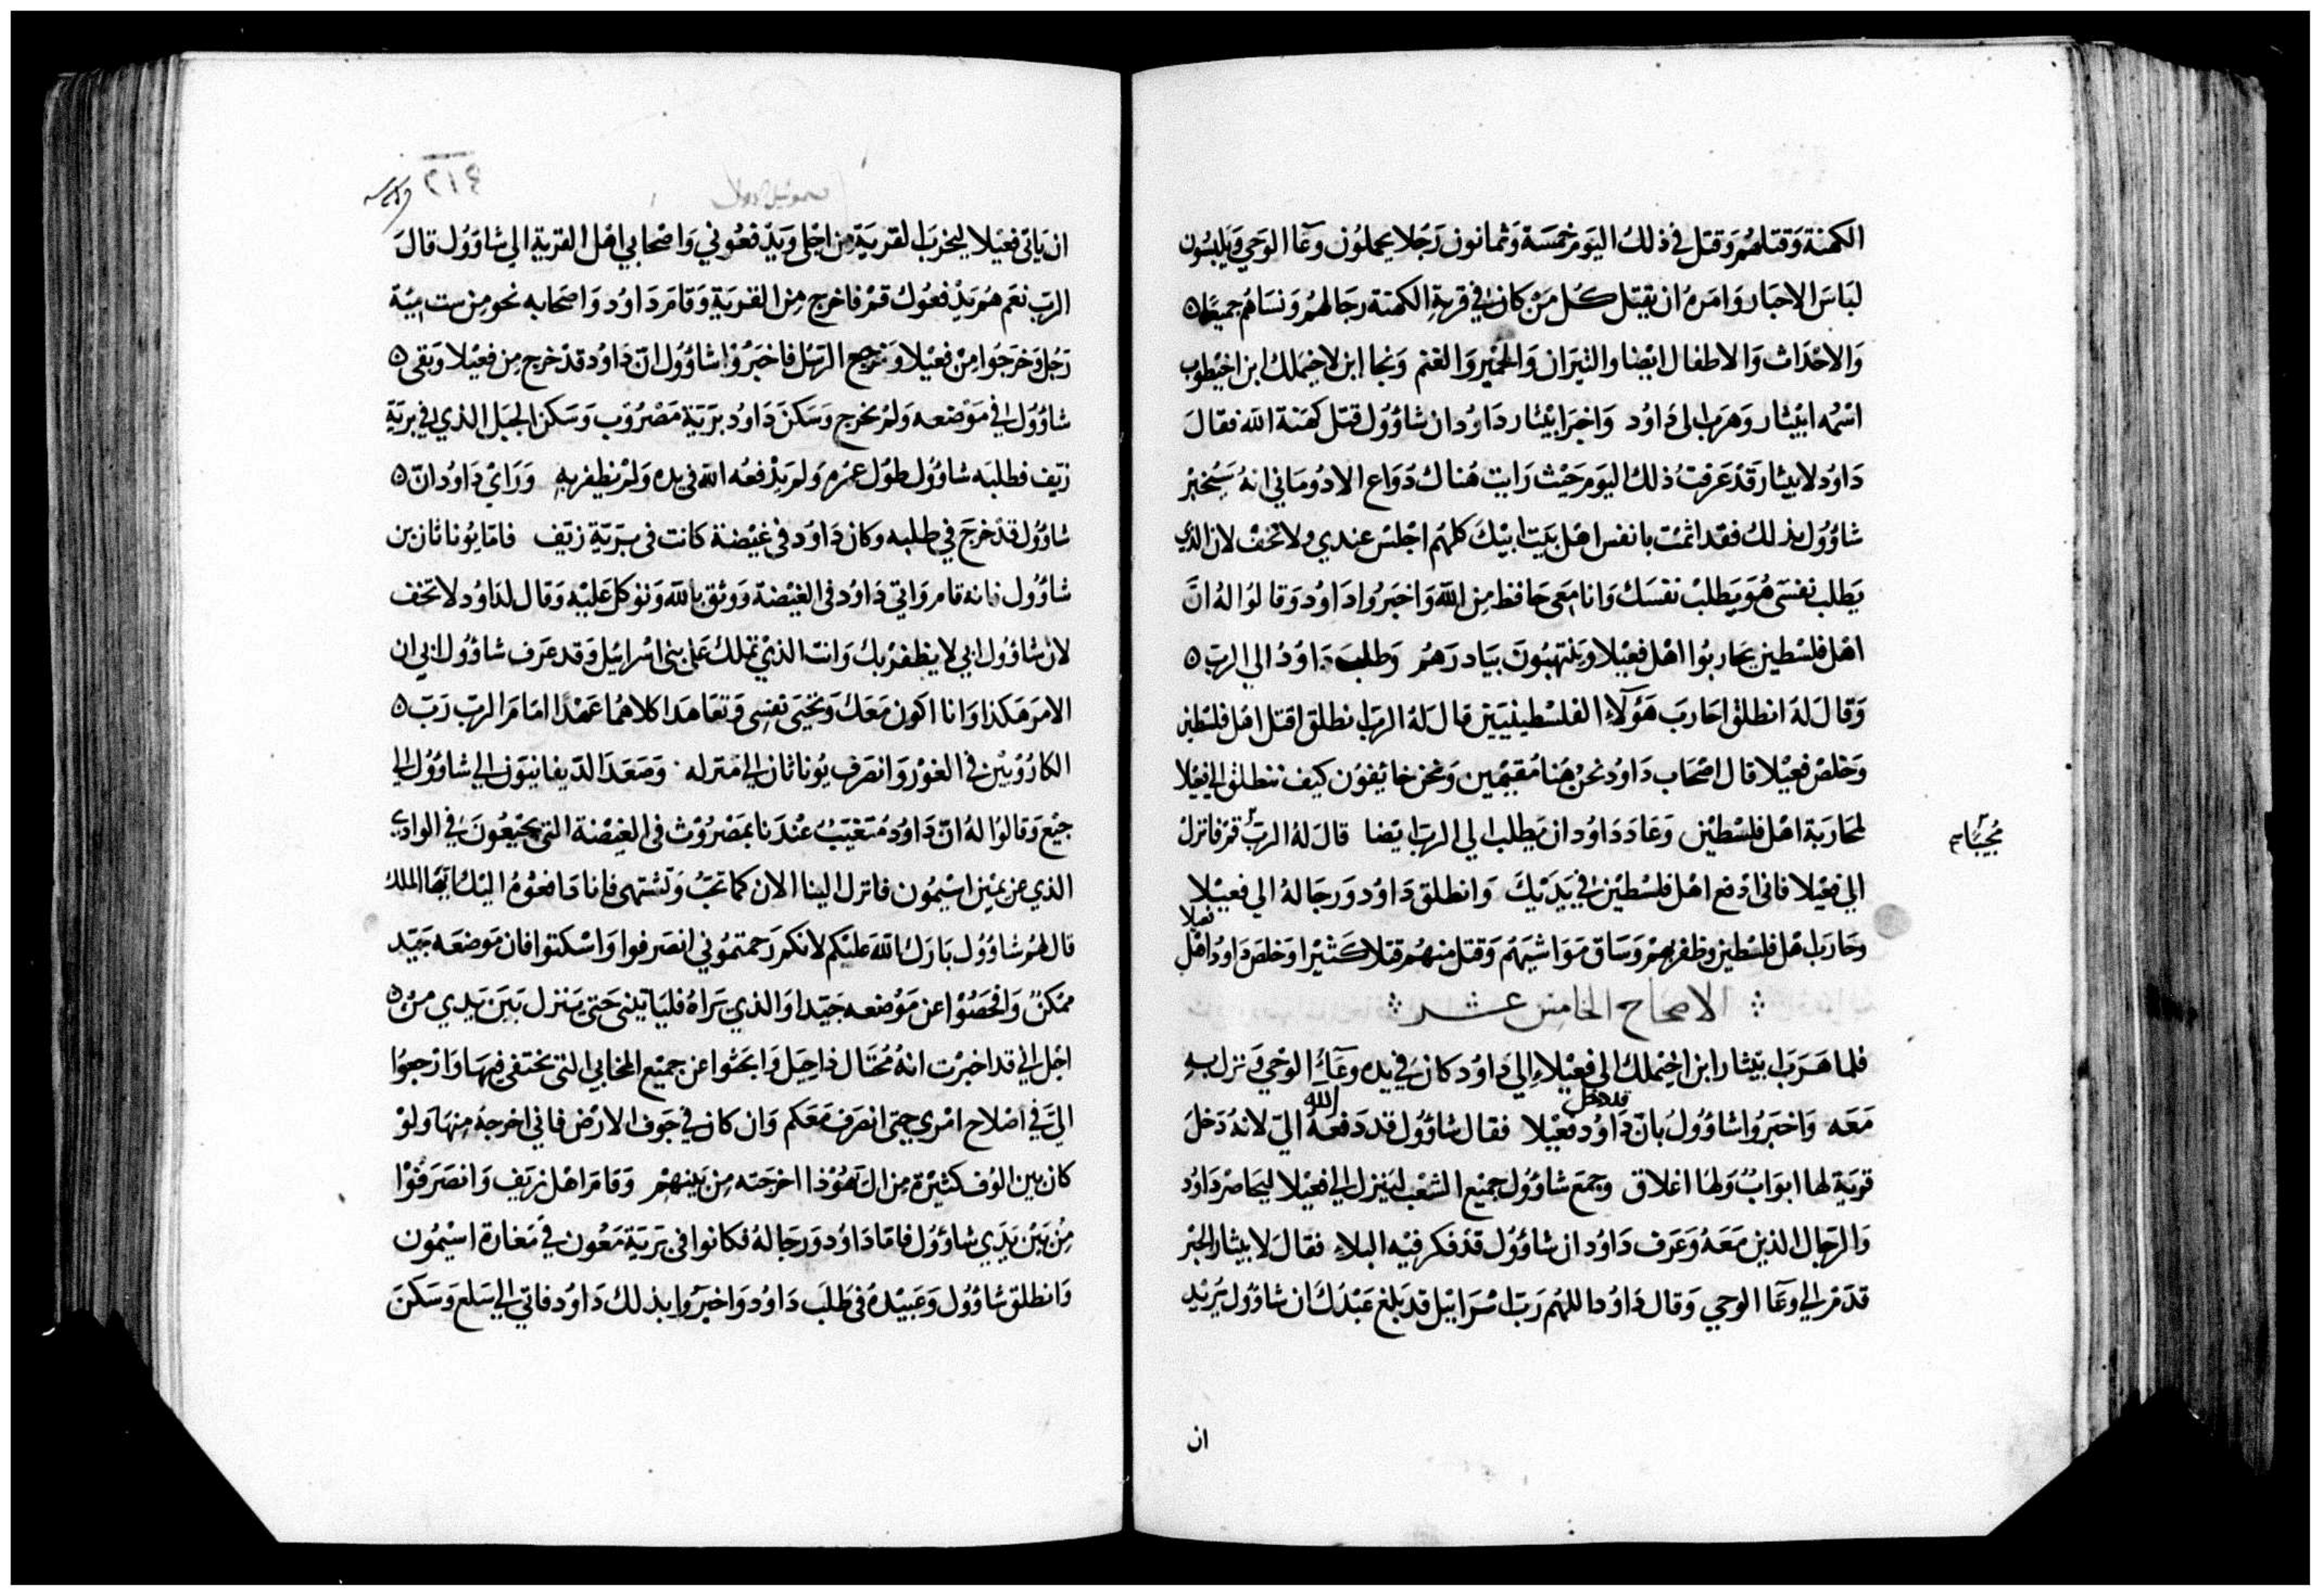 الكهنة وَقتلهُم وَقتل في ذلكَ اليَوم خمسَة وَثمانون رَجُلا يحملوُن وعَآا الوَحي وَيلبسُون
لبَاسَ الاحبَار وَامَرهُ ان يقتل كُل مَنْ كان في قريةِ الكهنة رجَالهُم وَنسَاهُم جميعًا ه
وَالاحْدَاث وَالاطفال ايْضا والثيرَان وَالحمْير وَالغنم وَنجا ابن لاخيملك ابن اخيْطوب
اسْمُه ابيْثار وَهرَب الى دَاوُد وَاخبَر ابيْثار دَاوُد ان شاؤول قتل كهَنة الله فقالَ
دَاوُد لابيثار قَدْ عَرَفتُ ذلكَ اليَوم حَيْث رَايت هُناكَ دَوَاع الادُومَاني انهُ سَيُخبر
شاؤوُل بذلكَ فقد اثمْت بانفس اهْل بَيت ابيْكَ كلهُم اجْلسْ عندي ولا تخفْ لان الذي
يَطلب نفسَى هُوَ يَطلبْ نفسَك وَانا مَعى حَافظ مِن الله وَاخبَرُوا دَاوُد وَقالوُا لهُ انَّ
اهْل فلسْطين يحَاربُوا اهْل فعيْلا وَينتهبُونَ بيَادرَهُم وَطلبَ دَاوُدُ الي الرب ه
وَقالَ لهُ انطلقْ احَاربَ هَؤلآءِ الفلسْطينييَن قالَ لهُ الرَب انطلق اقتل اهْل فلسْطين
وَخلصْ فعيْلا قال اصْحَاب دَاوُد نحنُ هُنا مُقيمْين وَنحن خايفوُن كيف ننطلق الى فعيْلا
لمحَارَبة اهْل فلسْطيْن وَعَادَ دَاوُد ان يَطلب الي الرَب ايْضا قالَ لهُ الربّ قمْ فانزلْ
مُجيبًا
الي فعيْلا فانى ادْفع اهْل فلسْطيْن في يَدَيْكَ وَانطلق دَاوُد وَرجَالهُ الي فعيْلا
وحَارَب اهل فلسْطين وظفر بهمْ وَسَاق مَوَاشيَهُم وَقتل منهُم قتلا كثيرًا وَخلصَ دَاوُد اهْل
فعيلا
الاصحاح الخامس عشر
فلما هَرَب ابيثار ابن اخيْملك الى فعيْلاءِ الي دَاوُد كان في يده وعَآءِ الوَحْي وَنزل بهِ
مَعَه وَاخبَرُوا شاؤوُلُ بانّ دَاوُد قد دخل فعيْلا فقال شاؤوُل قد دَفعَهُ الله اليّ لانهُ دَخلَ
قريَة لها ابوَابٌ وَلهَا اغلاق وجمعَ شاؤوُل جميْع الشعْب ليَنزل الي فعيْلا ليحَاصرْ دَاوُد
وَالرجَال الذين مَعَهُ وَعَرَف دَاوُد ان شاؤوُل قدْ فكر فيْه البلاءِ فقالَ لابيثار الحبْر
قدَمْ الي وعَآا الوحي وَقال دَاوُد اللهُم رَبّ اسْرَاييْل قد بَلغ عَبْدُكَ ان شاؤوُل يُريْد
ان
٢١٤
صموئيل الاول
ان يَاتى فعيْلا ليخربَ القريَة من اجْلى وَيدْفعُوني وَاصْحَابي اهْل القريَة الي شاؤوُل قالَ
الربّ نعَم هُم يَدْفعُوكَ قمْ فاخرج مِن القريَة وَقامَ دَاوُد وَاصحَابه نحو مِن ست مِئة
رَجُل وَخرَجُوا مِنْ فعيْلا وَتوَجهَ الرسُل فاخبَرُوا شاؤوُل انّ دَاوُد قدْ خرج مِن فعيْلا وَبَقى ه
شاؤوُل في مَوْضعه وَلمْ يخرج وَسَكنَ دَاوُد برَيَة مَصْرُوَب وَسَكن الجبَل الذي في بريَةِ
زيَف فطلبَه شاؤوُل طوُل عمْرهِ وَلمْ يَدْفعُه الله فى يده وَلمْ يَظفر بهِ وَرَايْ دَاوُد انّ ه
شاؤوُل قدْ خرَجَ في طلبه وكان دَاوُد فى غيْضة كانت فى بَريَةِ زيَف فامَا يوُناثان بن
شاؤوُل فانه قامَ وَاتي دَاوُد فى الغيْضة وَوثق بالله وَتوَكلَ عَليْه وَقال لدَاوُد لا تخف
لان شاؤوُل ابي لا يظفرْ بكَ وَانت الذيْ تملك عَلى بنى اسْرائيل وَقد عَرَف شاؤوُل ابي ان
الامَر هَكذا وَانا اكون مَعَكَ وَتحيَى نفسِى وَتعَاهَدَا كلاهمَا عَهْدًا امَامَ الربّ رَبّ ه
الكارُوُبيْن فى الغوْر وَانصَرف يُوناثان الي مَنزله وَصَعَدَ الدّيفانيَون الي شاؤوُل الي
جبْع وَقالوُا لهُ انّ دَاوُد مُتغيَبُ عنْدَنا بمَصْرُوْث فى الغيْضة التى يجتمعُونَ في الوَادي
الذي عن يميْن اسْيمُون فانزل الينا الان كما تحبُ وَتشتهى فانا دَافعُوْهُ اليْكَ ايَهُا الملك
قال لهُم شاؤوُل بَارَكَ الله عَليْكم لانكم رَحمتموُني انصَرفوا وَاسْكتوا فان مَوضعَه جَيّد
ممكنْ وَافحَصُوْا عن مَوْضعه جَيّدا وَالذي يَرَاهُ فليَاتينى حَتى يَنزل بَيَن يَدي مِن ه
اجْل اني قد اخبرْت انهُ مُحتَال ذا حِيَل وَابحَثوا عن جميْع المخابي التى يختفى فيهَا وَارْجعُوا
اليَّ فى اصْلاح امْري حتى انصَرفَ مَعَكم وَان كان في جَوف الارْض فاني اخرجهُ مِنهَا وَلوْ
كان بين الوُف كثيْرة مِن ال يَهُوْذا اخرَجَته مِن بَينهمْ وَقامَ اهْل زيَف وَانصَرَفوْا
مِنْ بَيْن يَدَي شاؤوُل فامَا دَاوُد وَرجَالهُ فكانوا فى بَريَة مَعُون في مَغارَة اسْيمُون
وَانطلق شاؤوُل وَعَبيْدهُ فى طلَب دَاوُد وَاخبَرُوا بذلكَ دَاوُد فاتي الي سَلع وَسَكنَ